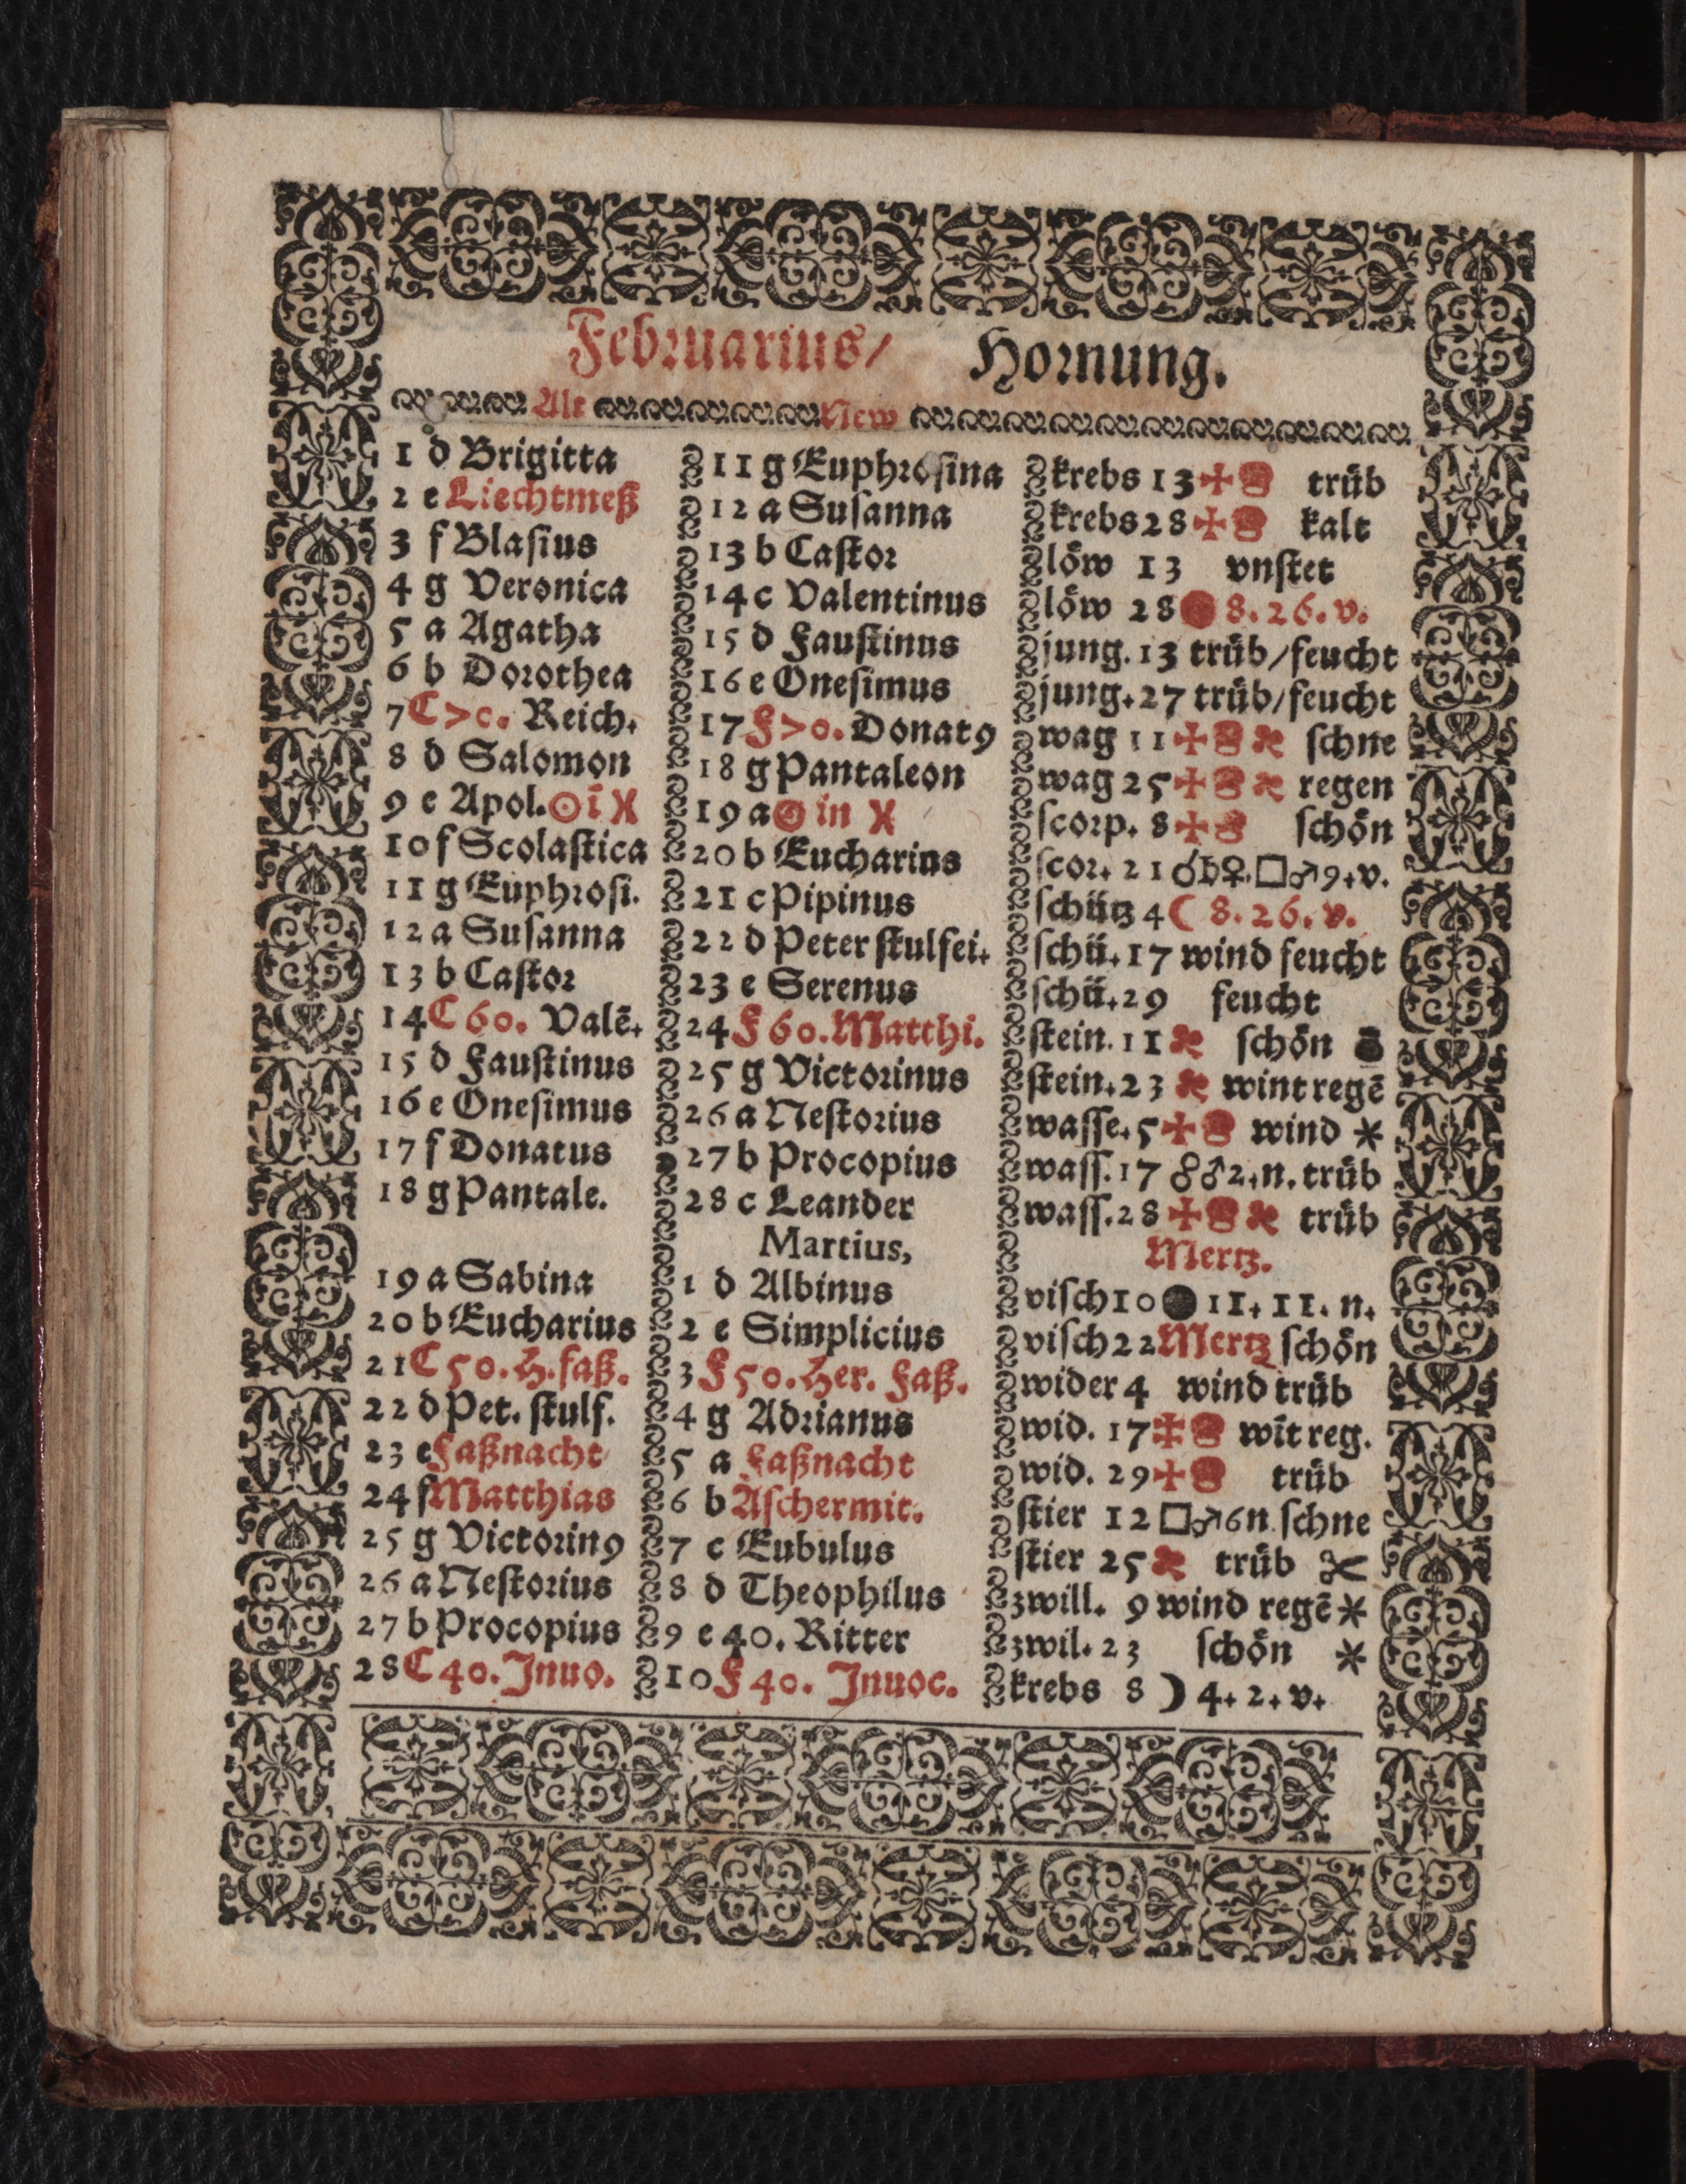 Februarius/ Hornung.
Alt New
1 d Brigitta 11 g Euphrosina krebs 13 ✠ trüb
2 e Liechtmeß 12 a Susanna krebs 28 ✠ kalt
3 f Blasius 13 b Castor löw 13 vnstet
4 g Veronica 14 c Valentinus löw 28 8. 26. v.
5 a Agatha 15 d Faustinus jung. 13 trüb/feucht
6 b Dorothea 16 e Onesimus jung. 27 trüb/feucht
7 C >c. Reich. 17 F >o. Donatꝰ wag 11 ✠ schne
8 d Salomon 18 g Pantaleon wag 25 ✠ regen
9 e Apol. ☉ ī ♓ 19 a ☉ in ♓ scorp. 8 ✠ schön
10 f Scolastica 20 b Eucharius scor. 21 ☌ ♄ ♀. □ ♂ 9. v.
11 g Euphrosi. 21 c Pipinus schütz 4 ☾ 8. 26. v.
12 a Susanna 22 d Peter stulfei. schü. 17 wind feucht
13 b Castor 23 e Serenus schü. 29 feucht
14 C 60. Valē. 24 F 60. Matthi. stein. 11 schön
15 d Faustinus 25 g Victorinus stein. 23 wint regē
16 e Onesimus 26 a Nestorius wasse. 5 ✠ wind ⚹
17 f Donatus 27 b Procopius wass. 17 ☍ ♂ 2. n. trüb
18 g Pantale. 28 c Leander wass. 28 ✠ trüb
Martius, Mertz.
19 a Sabina 1 d Albinus visch 10 ● 11. 11. n.
20 b Eucharius 2 e Simplicius visch 22 Mertz schön
21 C 50. H. faß. 3 F 50. Her. Faß. wider 4 wind trüb
22 d Pet. stulf. 4 g Adrianus wid. 17 ✠ wīt reg.
23 e Faßnacht 5 a Faßnacht wid. 29 ✠ trüb
24 f Matthias 6 b Aschermit. stier 12 □ ♂ 6 n. schne
25 g Victorinꝰ 7 c Eubulus stier 25 trüb ✂
26 a Nestorius 8 d Theophilus zwill. 9 wind regē ⚹
27 b Procopius 9 e 40. Ritter zwil. 23 schön ⚹
28 C 40. Inuo. 10 F 40. Inuoc. krebs 8 ☽ 4. 2. v.